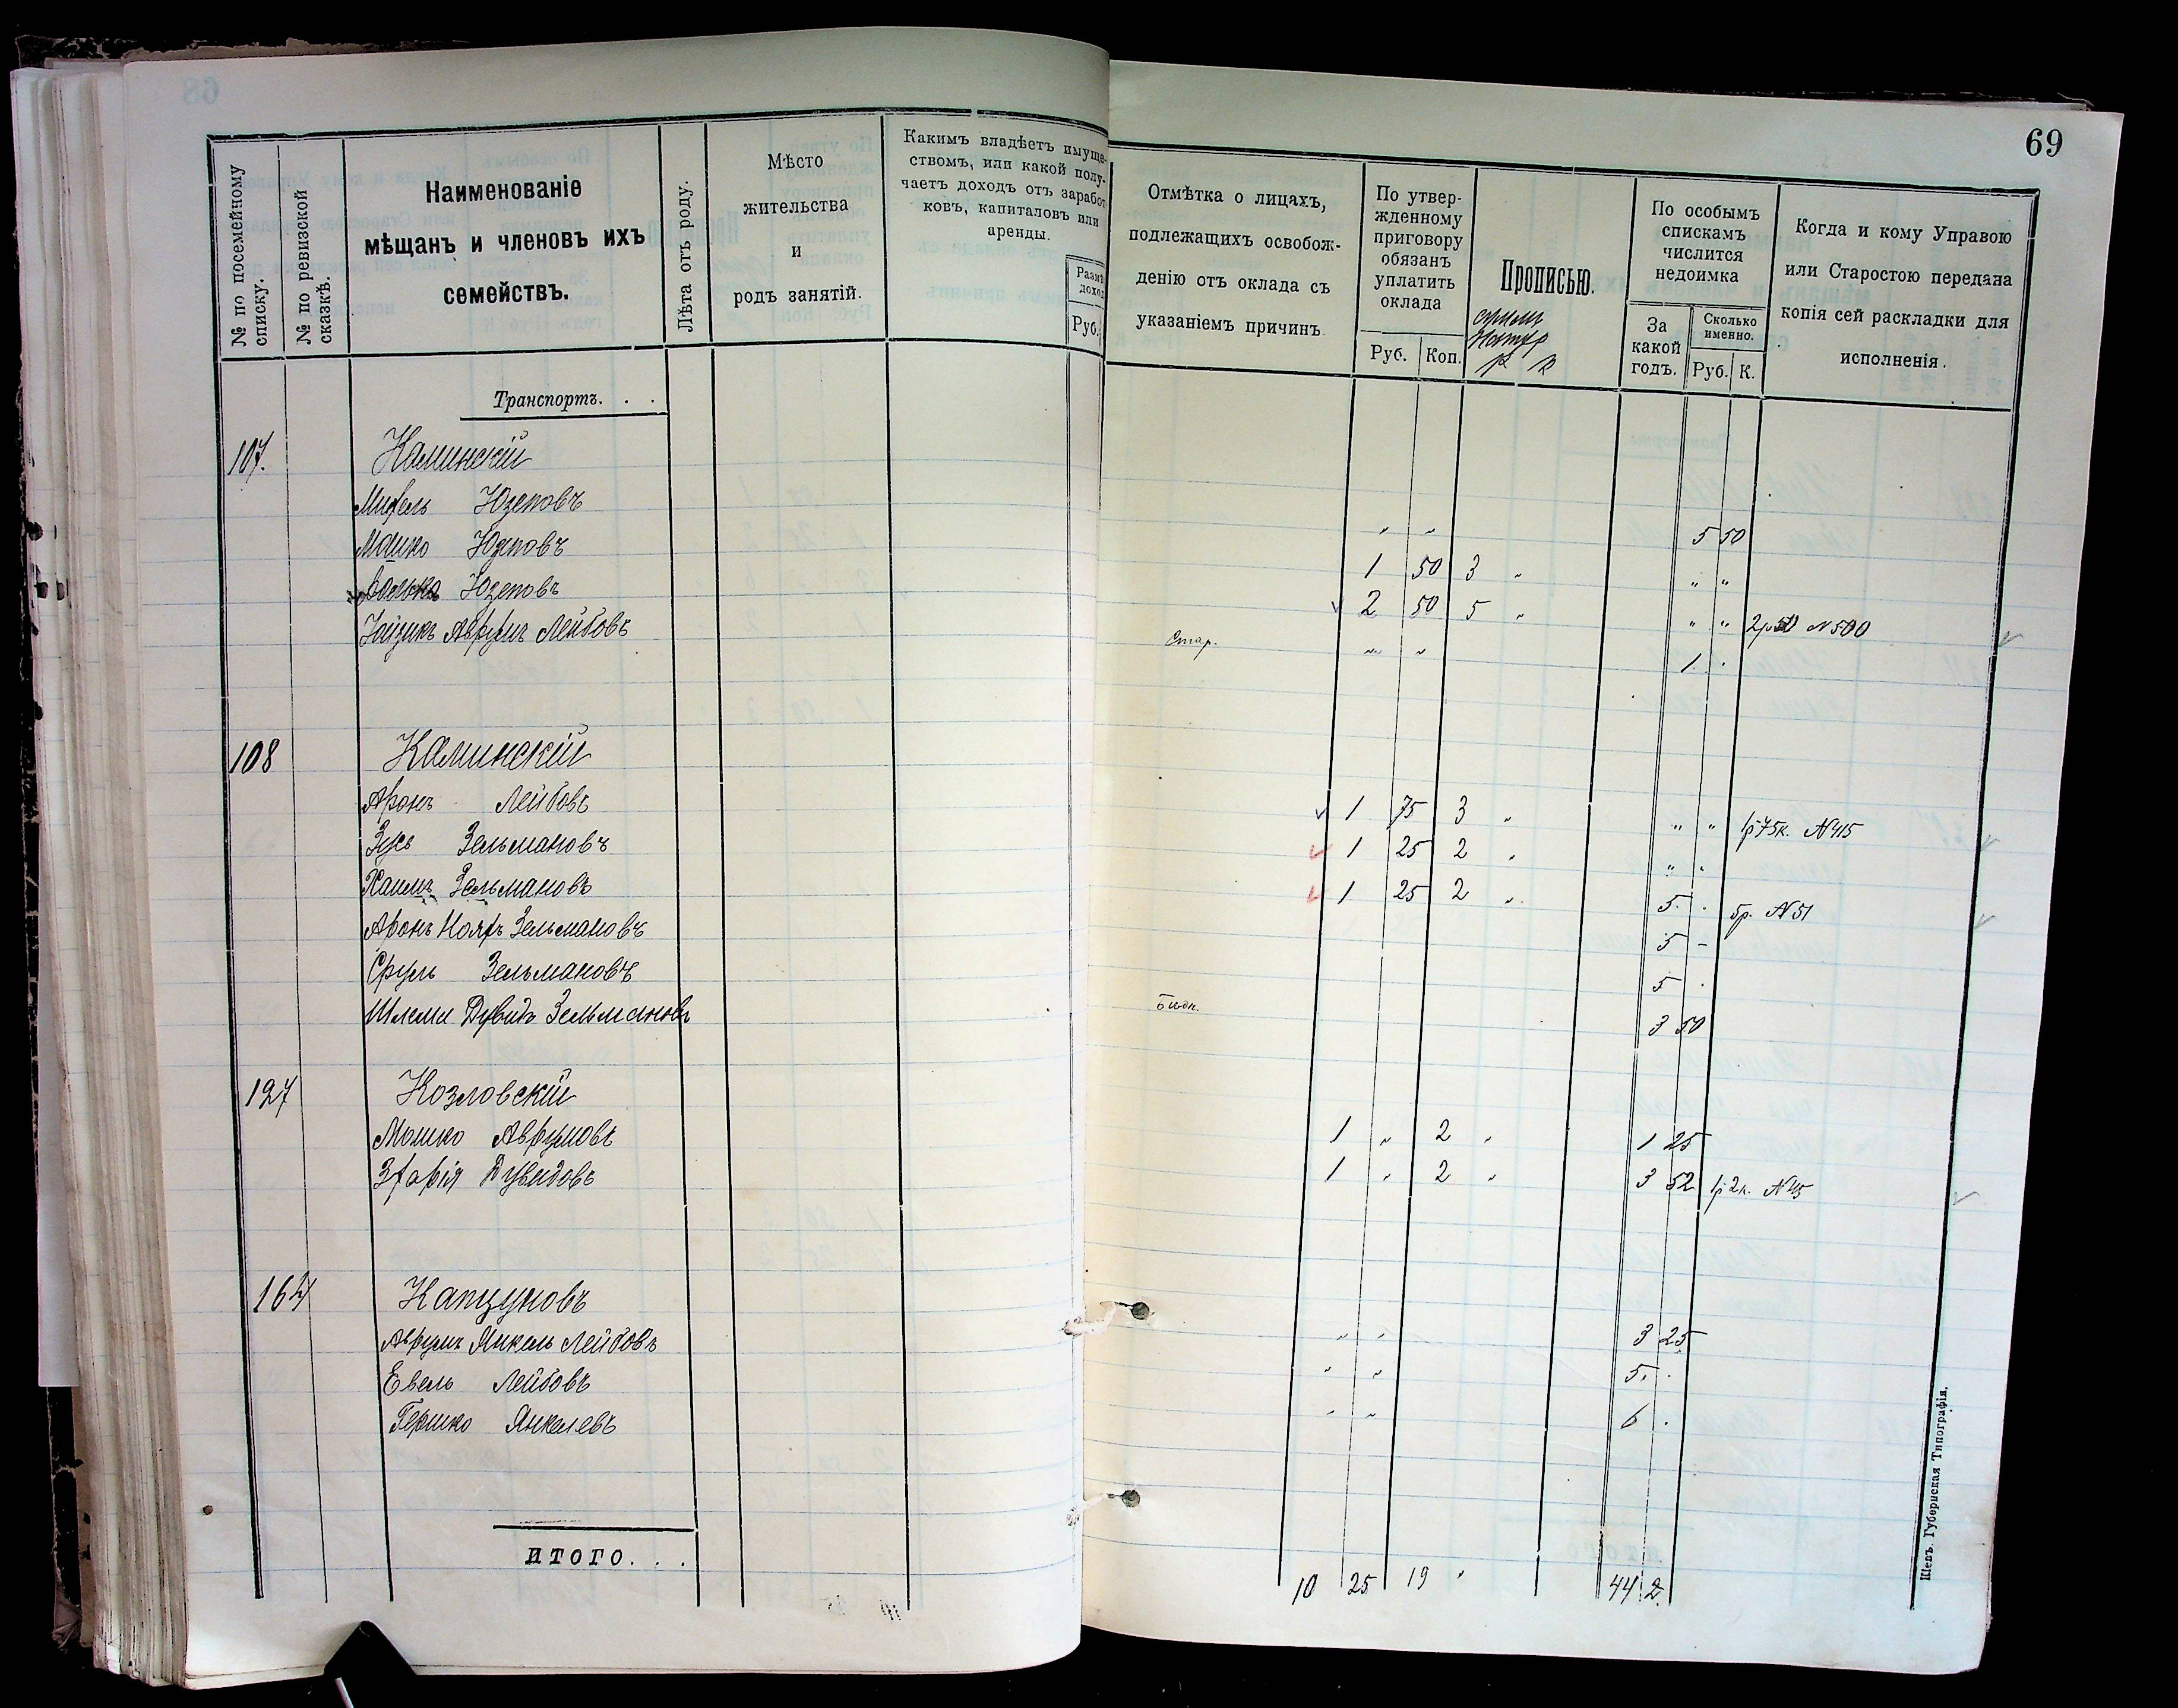 69
№ по посемейному списку.
№ по ревизской сказкѣ.
Наименованіе
мѣщанъ и членовъ ихъ
семействъ.
Лѣта отъ роду.
Мѣсто
жительства
и
родъ занятій.
Какимъ владѣетъ имуще-
ствомъ, или какой полу-
чаетъ доходъ отъ заработ
ковъ, капиталовъ или
аренды.
Руб.
Отмѣтка о лицахъ,
подлежащихъ освобож-
денію отъ оклада съ
указаніемъ причинъ
По утвер-
жденному
приговору
обязанъ
уплатить
оклада
Руб. Коп.
Прописью.
По особымъ
спискамъ
числится
недоимка
За
какой
годъ.
Сколько
именно.
Руб. К.
Когда и кому Управою
или Старостою передана
копія сей раскладки для
исполненія.
Транспортъ. . .
107. Каминскій
Михель Юзеповъ „ „ 5 50
Мошко Юзеповъ 1 50 3 „ „ „
Юзеповъ 2 50 5 „ „ „ 2р 50 N 500
Аврумъ Лейбовъ Стар. „ „ 1 .
108 Каминскій
Аронъ Лейбовъ 1 75 3 „ „ „ 1р 75к. N 415
Зусь Зельмановъ 1 25 2 „ „ „
Хаимъ Зельмановъ 1 25 2 „ 5 . 5р. N 51
Аронъ Нояхъ Зельмановъ 5 -
Сруль Зельмановъ 5 .
Шлема Дувидъ Зельмановъ Бѣдн. 3 50
127 Козловскій
Мошко Аврумовъ 1 „ 2 „ 1 25
Зхарія Дувидовъ 1 „ 2 „ 3 52 1р 2к. N 45
164 Капцуновъ
Аврумъ Янкель Лейбовъ „ „ 3 25
Евель Лейбовъ „ „ 5 .
Гершко Янкелевъ „ „ 6 .
ИТОГО. . .
10 25 19 „ 44 2
Кіевъ. Губернская Типографія.